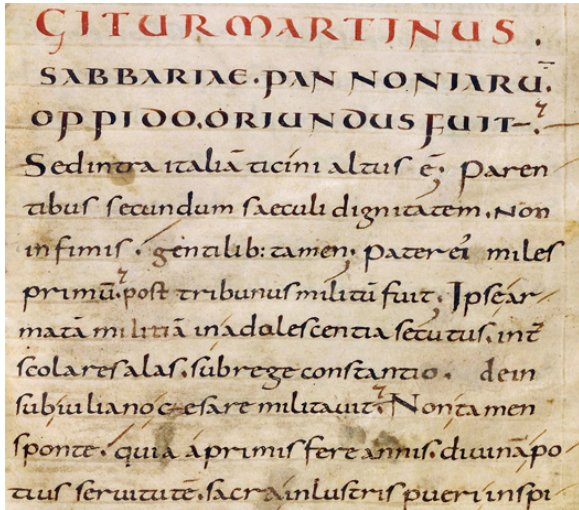 GITUR MARTINUS.
SABBARIAE. PAN NONIARŪ.
OPPIDO. ORIUNDUS FUIT.
Sed intra italiā ticini altus ē. Paren
tibus secundum saeculi dignitatem. Non
infimis. gentilib: tamen. Pater ei miles
primū. post tribunus militū fuit. Ipse ar
matā militiā in adolescentia secutus. int̄
scolares alas. sub rege constantio. dein
sub iuliano cesare militauit. Non tamen
sponte. quia a primis fere annis. diuinā po
tius seruitutē. sacra inlustris pueri inspi